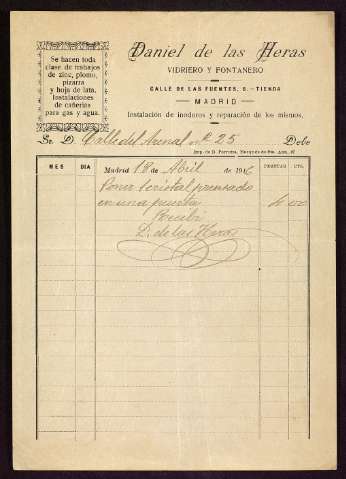 Se hacen toda
clase de trabajos
de zinc, plomo,
pizarra
y hoja de lata.
Instalaciones
de cañerías
para gas y agua.
Daniel de las Heras
VIDRIERO Y FONTANERO
CALLE DE LAS FUENTES, 9.-TIENDA
MADRID
Instalación de inodoros y reparación de los mismos.
Sr. D. Calle del Arenal nº 25 Debe
Imp. de B.
MES DIA Madrid 18 de Abril de 191 PESETAS CTS.
Poner 1 cristal prensado
en una puerta 4
Recibí
D. de las Heras